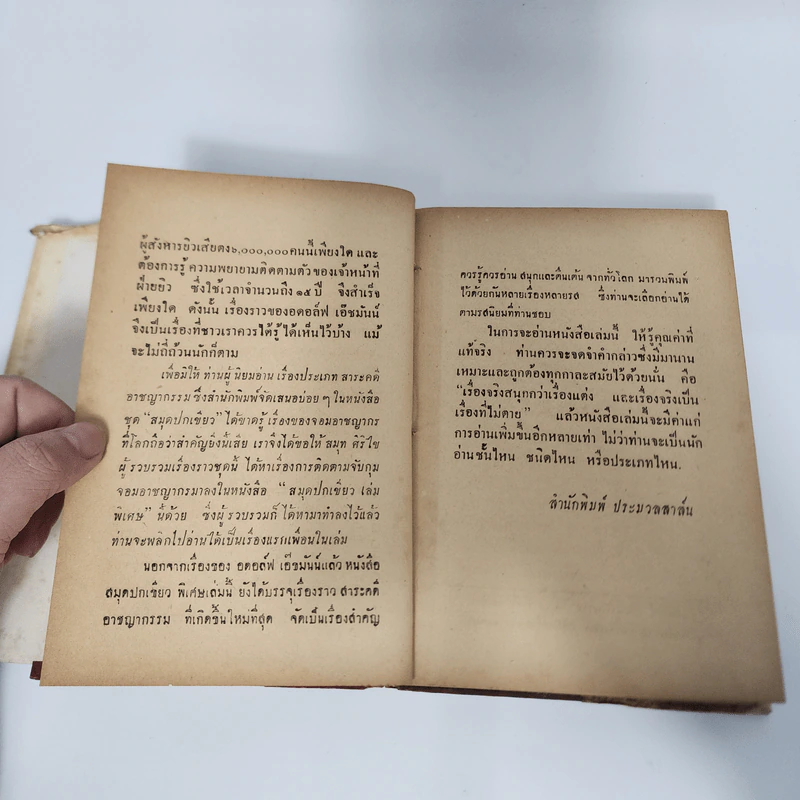 ผู้สังหารยิวเสียตง ๖,๐๐๐,๐๐๐ คนนี้เพียงใด และ
ต้องการรู้ ความพยายามติดตามตัวของเจ้าหน้าที่
ฝ่ายยิว ซึ่งใช้เวลาจำนวนถึง ๑๕ ปี จึงสำเร็จ
เพียงใด ดังนั้น เรื่องราวของอดอล์ฟ เอ๊ชมันน์
จึงเป็นเรื่องที่ชาวเราควรได้รู้ ได้เห็นไว้บ้าง แม้
จะไม่ถี่ถ้วนนักก็ตาม
เพื่อมิให้ ท่านผู้นิยมอ่าน เรื่องประเภท สาระคดี
อาชญากรรม ซึ่งสำนักพิมพ์จัดเสนอบ่อย ๆ ในหนังสือ
ชุด “สมุดปกเขียว” ได้ขาดรู้ เรื่องของจอมอาชญากร
ที่โลกถือว่าสำคัญยิ่งนี้เสีย เราจึงได้ขอให้ สมุท ศิริไข
ผู้รวบรวมเรื่องราวชุดนี้ ได้หาเรื่องการติดตามจับกุม
จอมอาชญากรมาลงในหนังสือ “สมุดปกเขียว เล่ม
พิเศษ” นี้ด้วย ซึ่งผู้รวบรวมก็ได้หามาทำลงไว้แล้ว
ท่านจะพลิกไปอ่านได้เป็นเรื่องแรกเพื่อนในเล่ม
นอกจากเรื่องของ อดอล์ฟ เอ๊ชมันน์แล้ว หนังสือ
สมุดปกเขียว พิเศษเล่มนี้ ยังได้บรรจุเรื่องราว สาระคดี
อาชญากรรม ที่เกิดขึ้นใหม่ที่สุด จัดเป็นเรื่องสำคัญ
ควรรู้ควรอ่าน สนุกและตื่นเต้น จากทั่วโลก มารวมพิมพ์
ไว้ด้วยกันหลายเรื่องหลายรส ซึ่งท่านจะเลือกอ่านได้
ตามรสนิยมที่ท่านชอบ
ในการจะอ่านหนังสือเล่มนี้ ให้รู้คุณค่าที่
แท้จริง ท่านควรจะจดจำคำกล่าวซึ่งมีมานาน
เหมาะและถูกต้องทุกกาละสมัยไว้ด้วยนั้น คือ
“เรื่องจริงสนุกกว่าเรื่องแต่ง และเรื่องจริงเป็น
เรื่องที่ไม่ตาย” แล้วหนังสือเล่มนี้จะมีค่าแก่
การอ่านเพิ่มขึ้นอีกหลายเท่า ไม่ว่าท่านจะเป็นนัก
อ่านชั้นไหน ชนิดไหน หรือประเภทไหน.
สำนักพิมพ์ ประมวลสาส์น